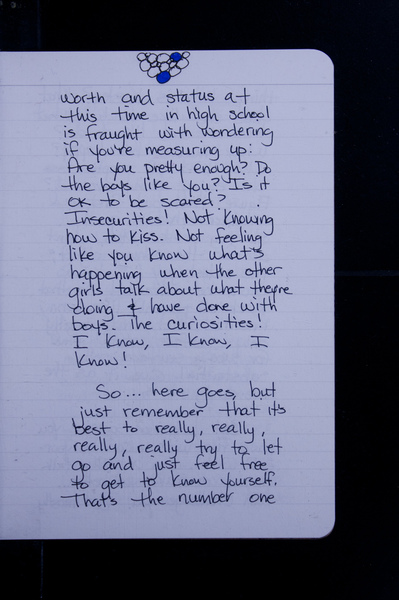 worth and status at
this time in high school
is fraught with wondering
if you're measuring up:
Are you pretty enough? Do
the boys like you? Is it
OK to be scared?
Insecurities! Not knowing
how to kiss. Not feeling
like you know what's
happening when the other
girls talk about what they're
doing & have done with
boys. The curiosities!
I know, I know, I
know!
So... here goes, but
just remember that it's
best to really, really,
really, really try to let
go and just feel free
to get to know yourself.
That's the number one